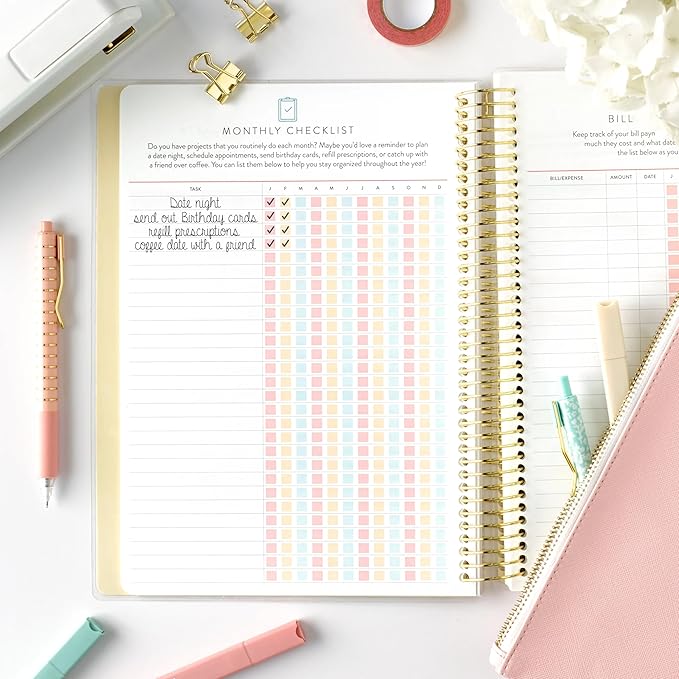 MONTHLY CHECKLIST
Do you have projects that you routinely do each month? Maybe you'd love a reminder to plan
a date night, schedule appointments, send birthday cards, refill prescriptions, or catch up with
a friend over coffee. You can list them below to help you stay organized throughout the year!
TASK J F M A M J J A S O N D
Date night
send out Birthday cards
refill prescriptions
coffee date with a friend
BILL
Keep track of your bill
much they cost and what date
the list below as you
BILL/EXPENSE AMOUNT DATE J